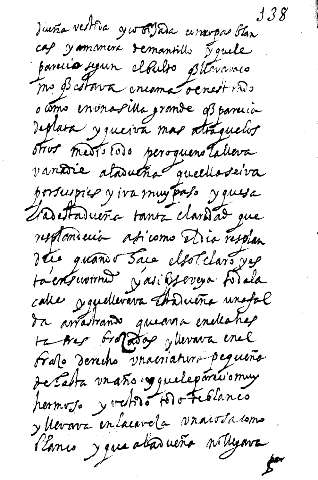 138
dueña vestida y tocada en ropas blan
cas y a manera de mantillo y que le
parecia segun el bulto q̃ llevava co
mo q̃ estava en cama o en estrado
o como en una silla grande q̃ parecia
de plata y que iva mas alta que los
otros medio todo pero que no la lleva
van a die a la dueña que ella se iva
por sus pies y iva muy paso y que sa
lia de la dueña tanta claridad que
resplandecia asi como el dia resplan
dece quando haze el sol claro y es
ta en su virtud y asi se veya toda la
calle y que llevava la dueña una fal
da arrastrando que avria en ella hes
ta tres brazadas y llevava en el
brazo derecho una criatura pequeña
de hasta un año y que le parecio muy
hermoso y vestido todo de blanco
y llevava en la cabeza una cosa como
blanco y que a la dueña no lleyava